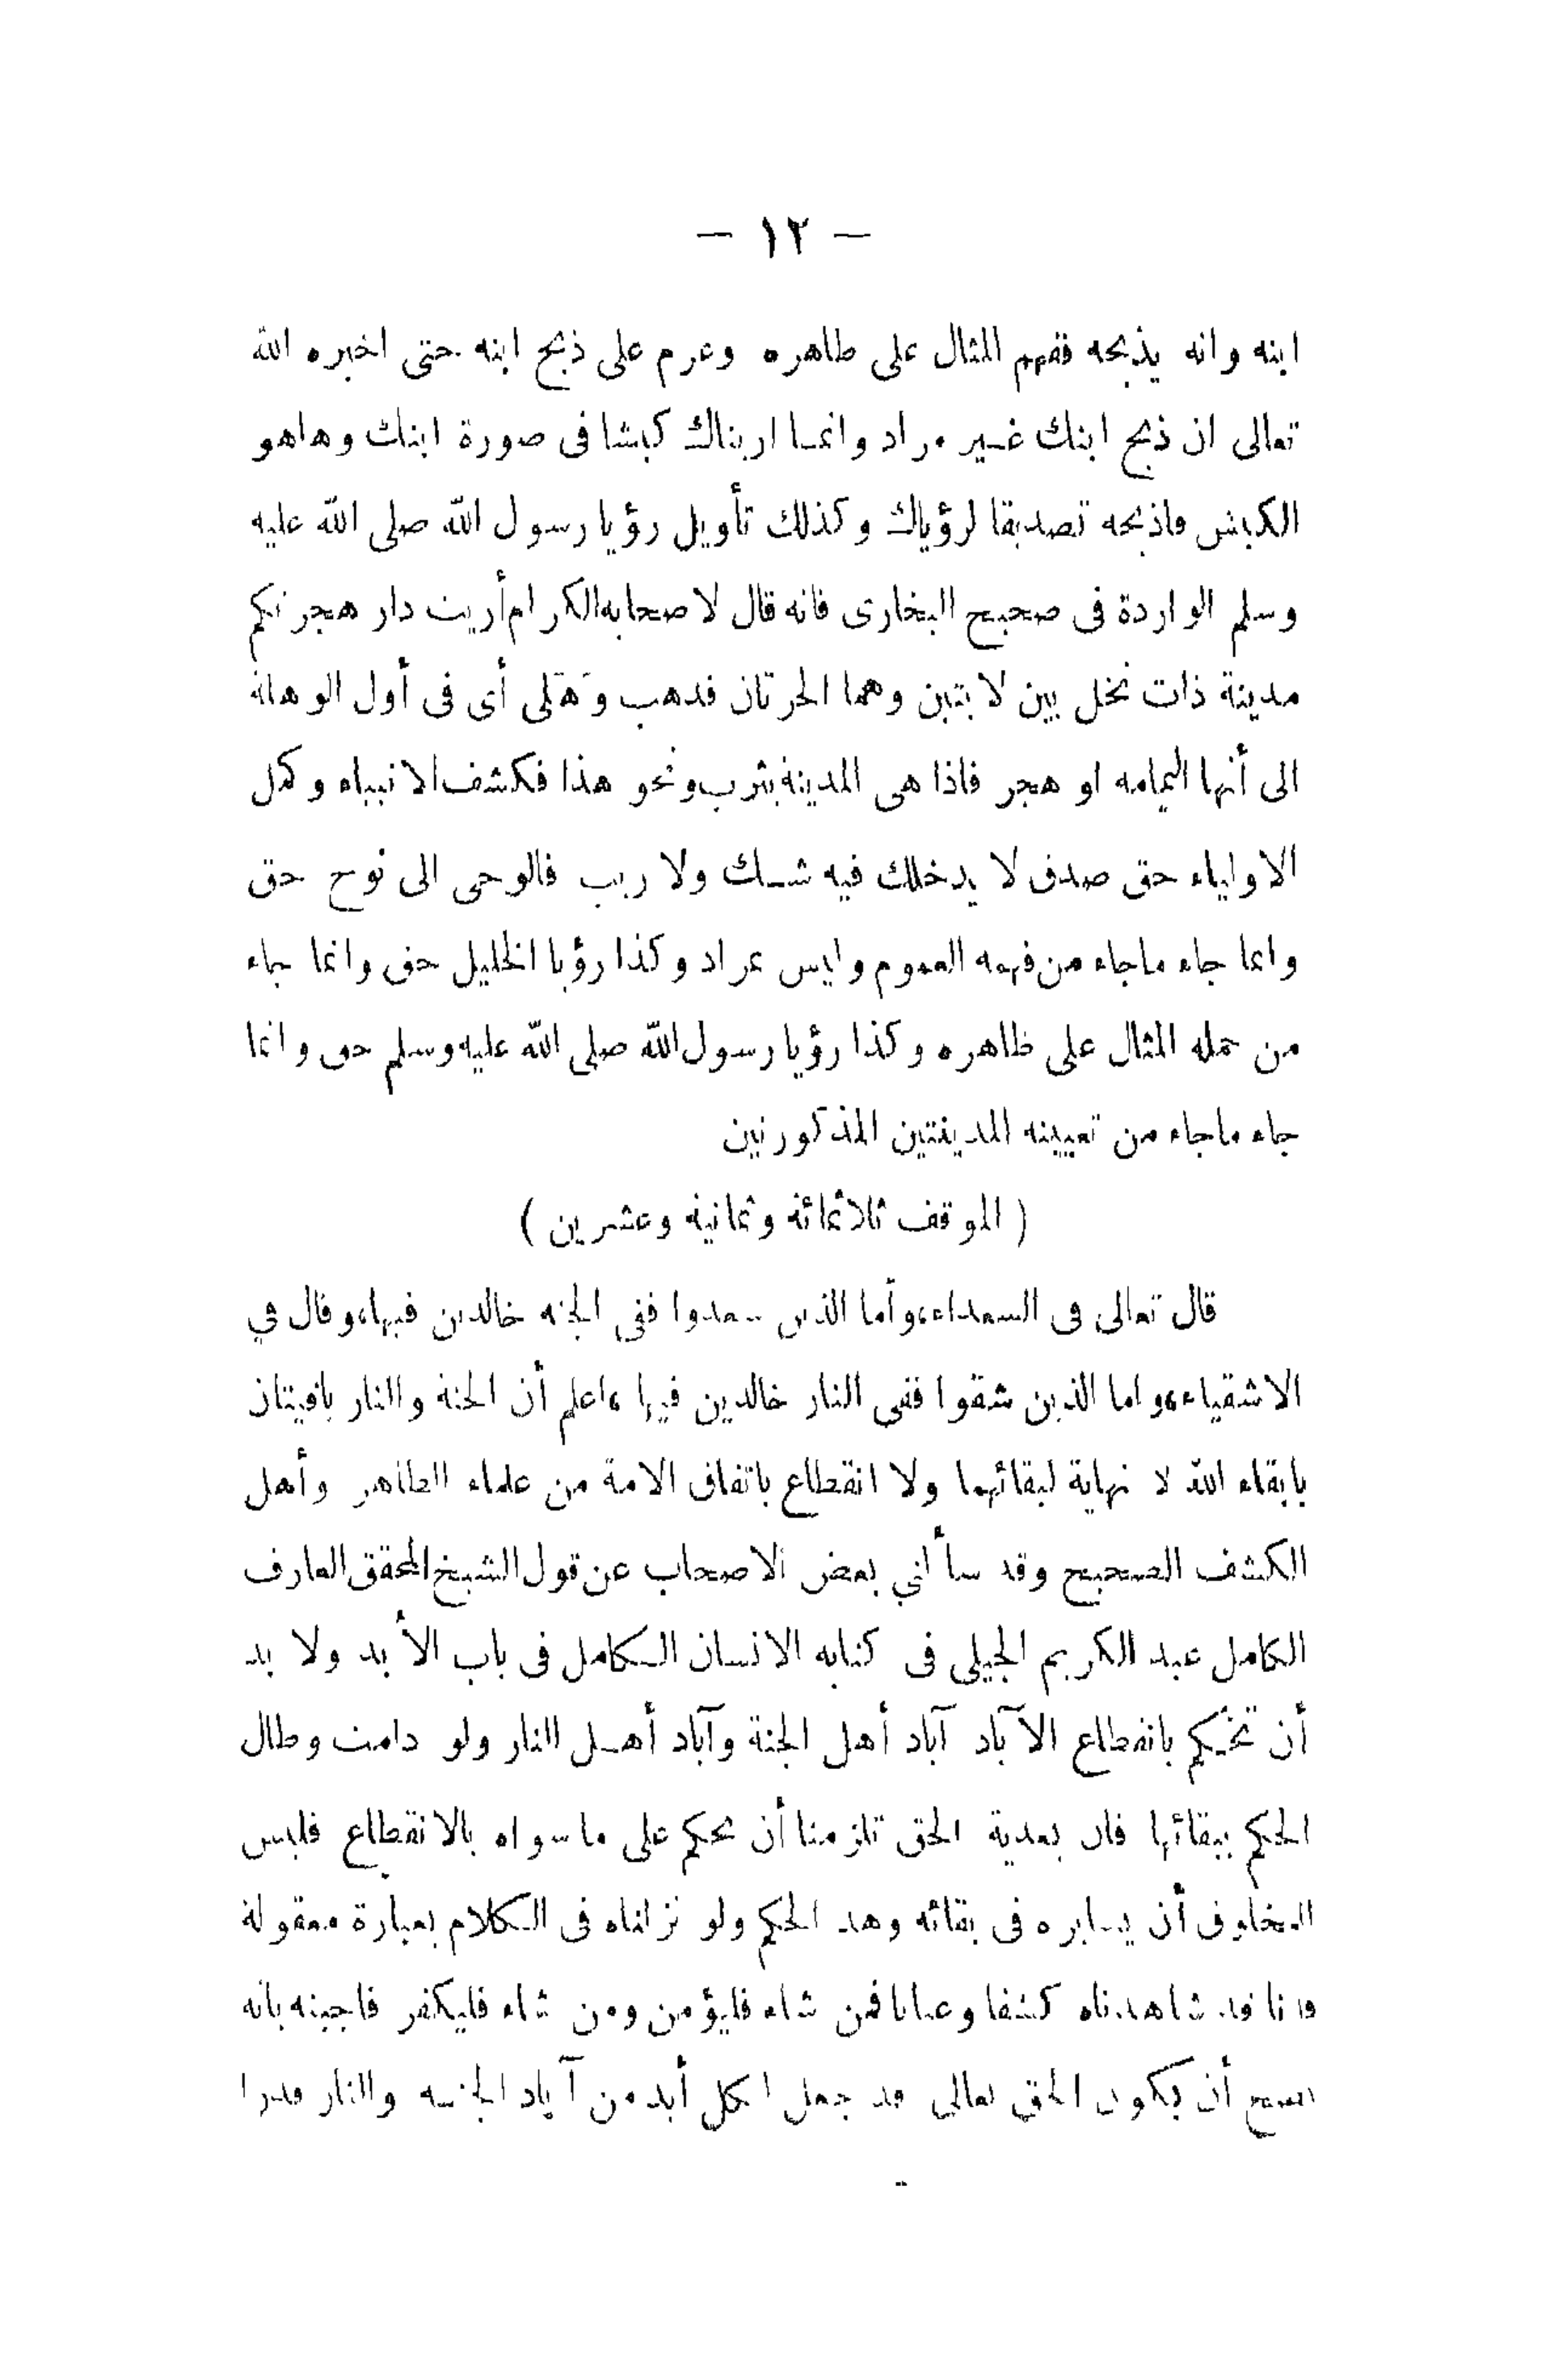 — ١٢ —
ابنه وانه يذبحه ففهم المثال على ظاهره وعزم على ذبح ابنه حتى اخبره الله
تعالى ان ذبح ابنك غير مراد وانما اريناك كبشا فى صورة ابنك وهاهو
الكبش فاذبحه تصديقا لرؤياك وكذلك تأويل رؤيا رسول الله صلى الله عليه
وسلم الواردة فى صحيح البخارى فانه قال لاصحابه الكرام أريت دار هجرتكم
مدينة ذات نخل بين لابتين وهما الحرتان فذهب وَهَلى أى فى أول الوهلة
الى أنها اليمامه او هجر فاذا هى المدينة يثرب ونحو هذا فكشف الانبياء وكمل
الاولياء حق صدق لا يدخلك فيه شك ولا ريب فالوحى الى نوح حق
وانما جاء ماجاء من فهمه العموم وليس بمراد وكذا رؤيا الخليل حق وانما جاء
من حمله المثال على ظاهره وكذا رؤيا رسول الله صلى الله عليه وسلم حق وانما
جاء ماجاء من تعيينه المدينتين المذكورتين
( الموقف ثلاثمائة وثمانية وعشرين )
قال تعالى فى السعداء، وأما الذين سعدوا ففى الجنه خالدين فيها، وقال في
الاشقياء، واما الذين شقوا ففى النار خالدين فيها ، اعلم أن الجنة والنار باقيتان
بابقاء الله لا نهاية لبقائهما ولا انقطاع باتفاق الامة من علماء الظاهر وأهل
الكشف الصحيح وقد سألني بعض الاصحاب عن قول الشيخ المحقق العارف
الكامل عبد الكريم الجيلى فى كتابه الانسان الكامل فى باب الأبد ولا بد
أن تحكم بانقطاع الآباد آباد أهل الجنة وآباد أهل النار ولو دامت وطال
الحكم ببقائها فان بعدية الحق تلزمنا أن نحكم على ما سواه بالانقطاع فليس
للمخلوق أن يسايره فى بقائه وهذ الحكم ولو نزلناه فى الكلام بعبارة معقولة
فانا قد شاهدناه كشفا وعيانا فمن شاء فليؤمن ومن شاء فليكفر فاجبته بانه
يصح أن يكون الحق تعالى قد جعل لكل أبد من آباد الجنه والنار قدرا